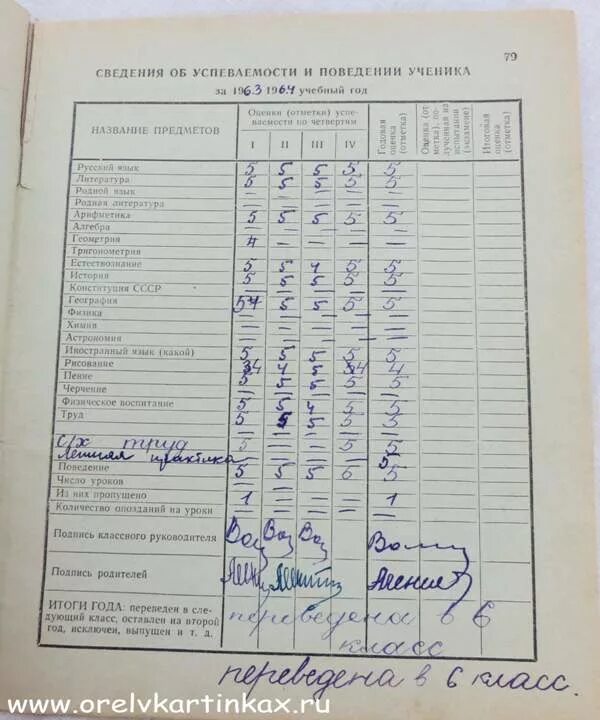 79
СВЕДЕНИЯ ОБ УСПЕВАЕМОСТИ И ПОВЕДЕНИИ УЧЕНИКА
за 1963 1964 учебный год
НАЗВАНИЕ ПРЕДМЕТОВ
Оценки (отметки) успеваемости по четвертям
I II III IV
Годовая оценка (отметка)
Оценка (отметка), полученная на испытании (экзамене)
Итоговая оценка (отметка)
Русский язык 5 5 5 5 5
Литература 5 5 5 5 5
Родной язык — — — — —
Родная литература — — — — —
Арифметика 5 5 5 5 5
Алгебра — — — — —
Геометрия 4 — — — —
Тригонометрия
Естествознание 5 5 4 5 5
История 5 5 5 5 5
Конституция СССР — — — — —
География 5 5 5 5
Физика — — — — —
Химия — — — — —
Астрономия — — — — —
Иностранный язык (какой) 5 5 5 5 5
Рисование 4 5 4
Пение 5 5 5 5 5
Черчение — — — — —
Физическое воспитание 5 5 4 5 5
Труд 5 5 5 5 5
с/х труд 5 — — 5 5
Летняя практика 5
Поведение 5 5 5 5
Число уроков — — — — —
Из них пропущено 1 — — — 1
Количество опозданий на уроки — — — — —
Подпись классного руководителя
Подпись родителей
ИТОГИ ГОДА: переведен в следующий класс, оставлен на второй год, исключен, выпущен и т. д.
переведена в 6
класс
переведена в 6 класс.
www.orelvkartinkax.ru